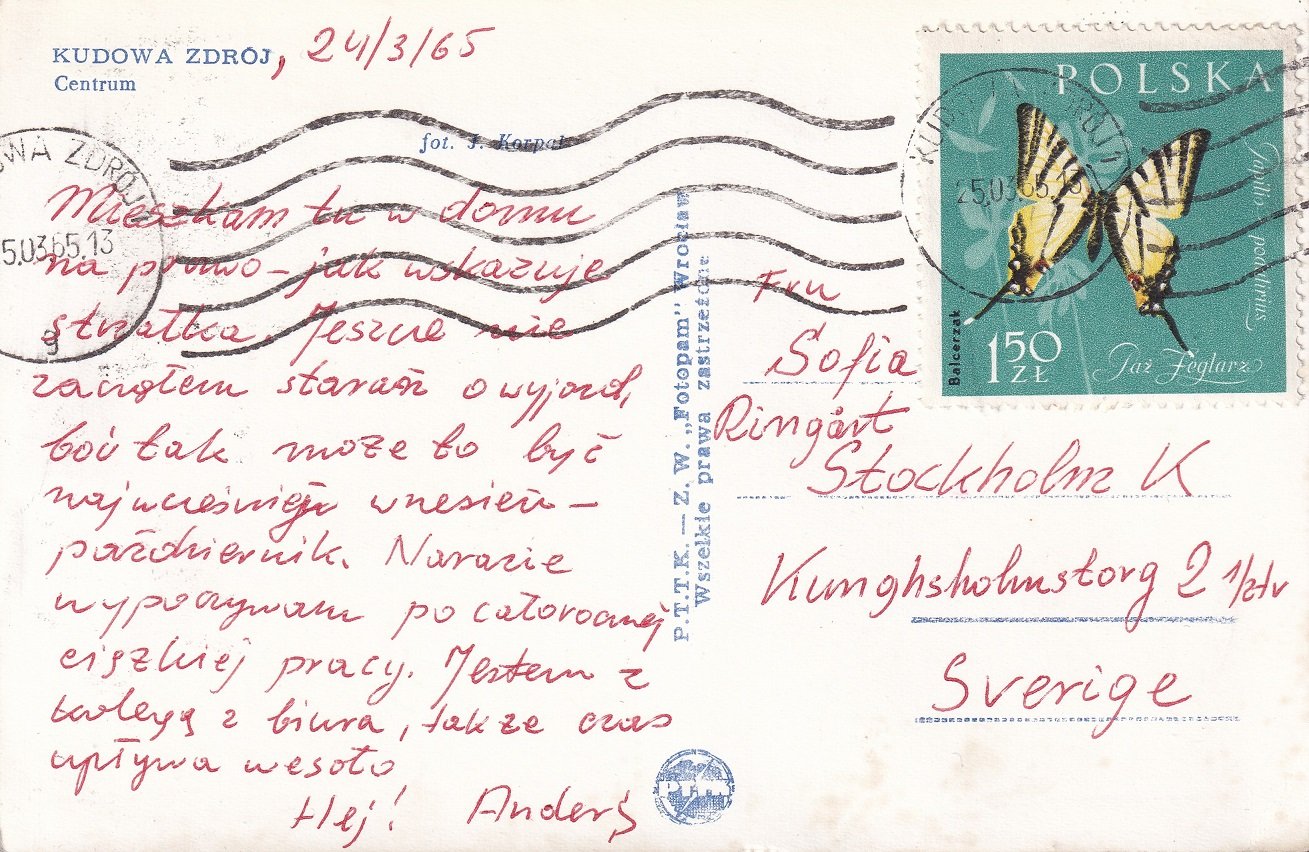 KUDOWA ZDRÓJ, 24/3/65
Centrum
fot. J. Korpal
KUDOWA ZDRÓJ 1
25.03.65.13
WA ZDRÓJ
5.03.65.13
g
POLSKA
Papilio podalirius
Paź Żeglarz
1 50 ZŁ
Balcerzak
Mieszkam tu w domu
na prawo – jak wskazuje
strzałka. Jeszcze nie
zacząłem starań o wyjazd,
boć tak może to być
najwcześniej wrzesień –
październik. Narazie
wypoczywam po całorocznej
ciężkiej pracy. Jestem z
kolegą z biura, także czas
upływa wesoło
Hej! Anders
P.T.T.K. — Z. W. „Fotopam" Wrocław
Wszelkie prawa zastrzeżone
Fru
Sofia
Ringårt
Stockholm K
Kunghsholmstorg 2 1/2tr
Sverige